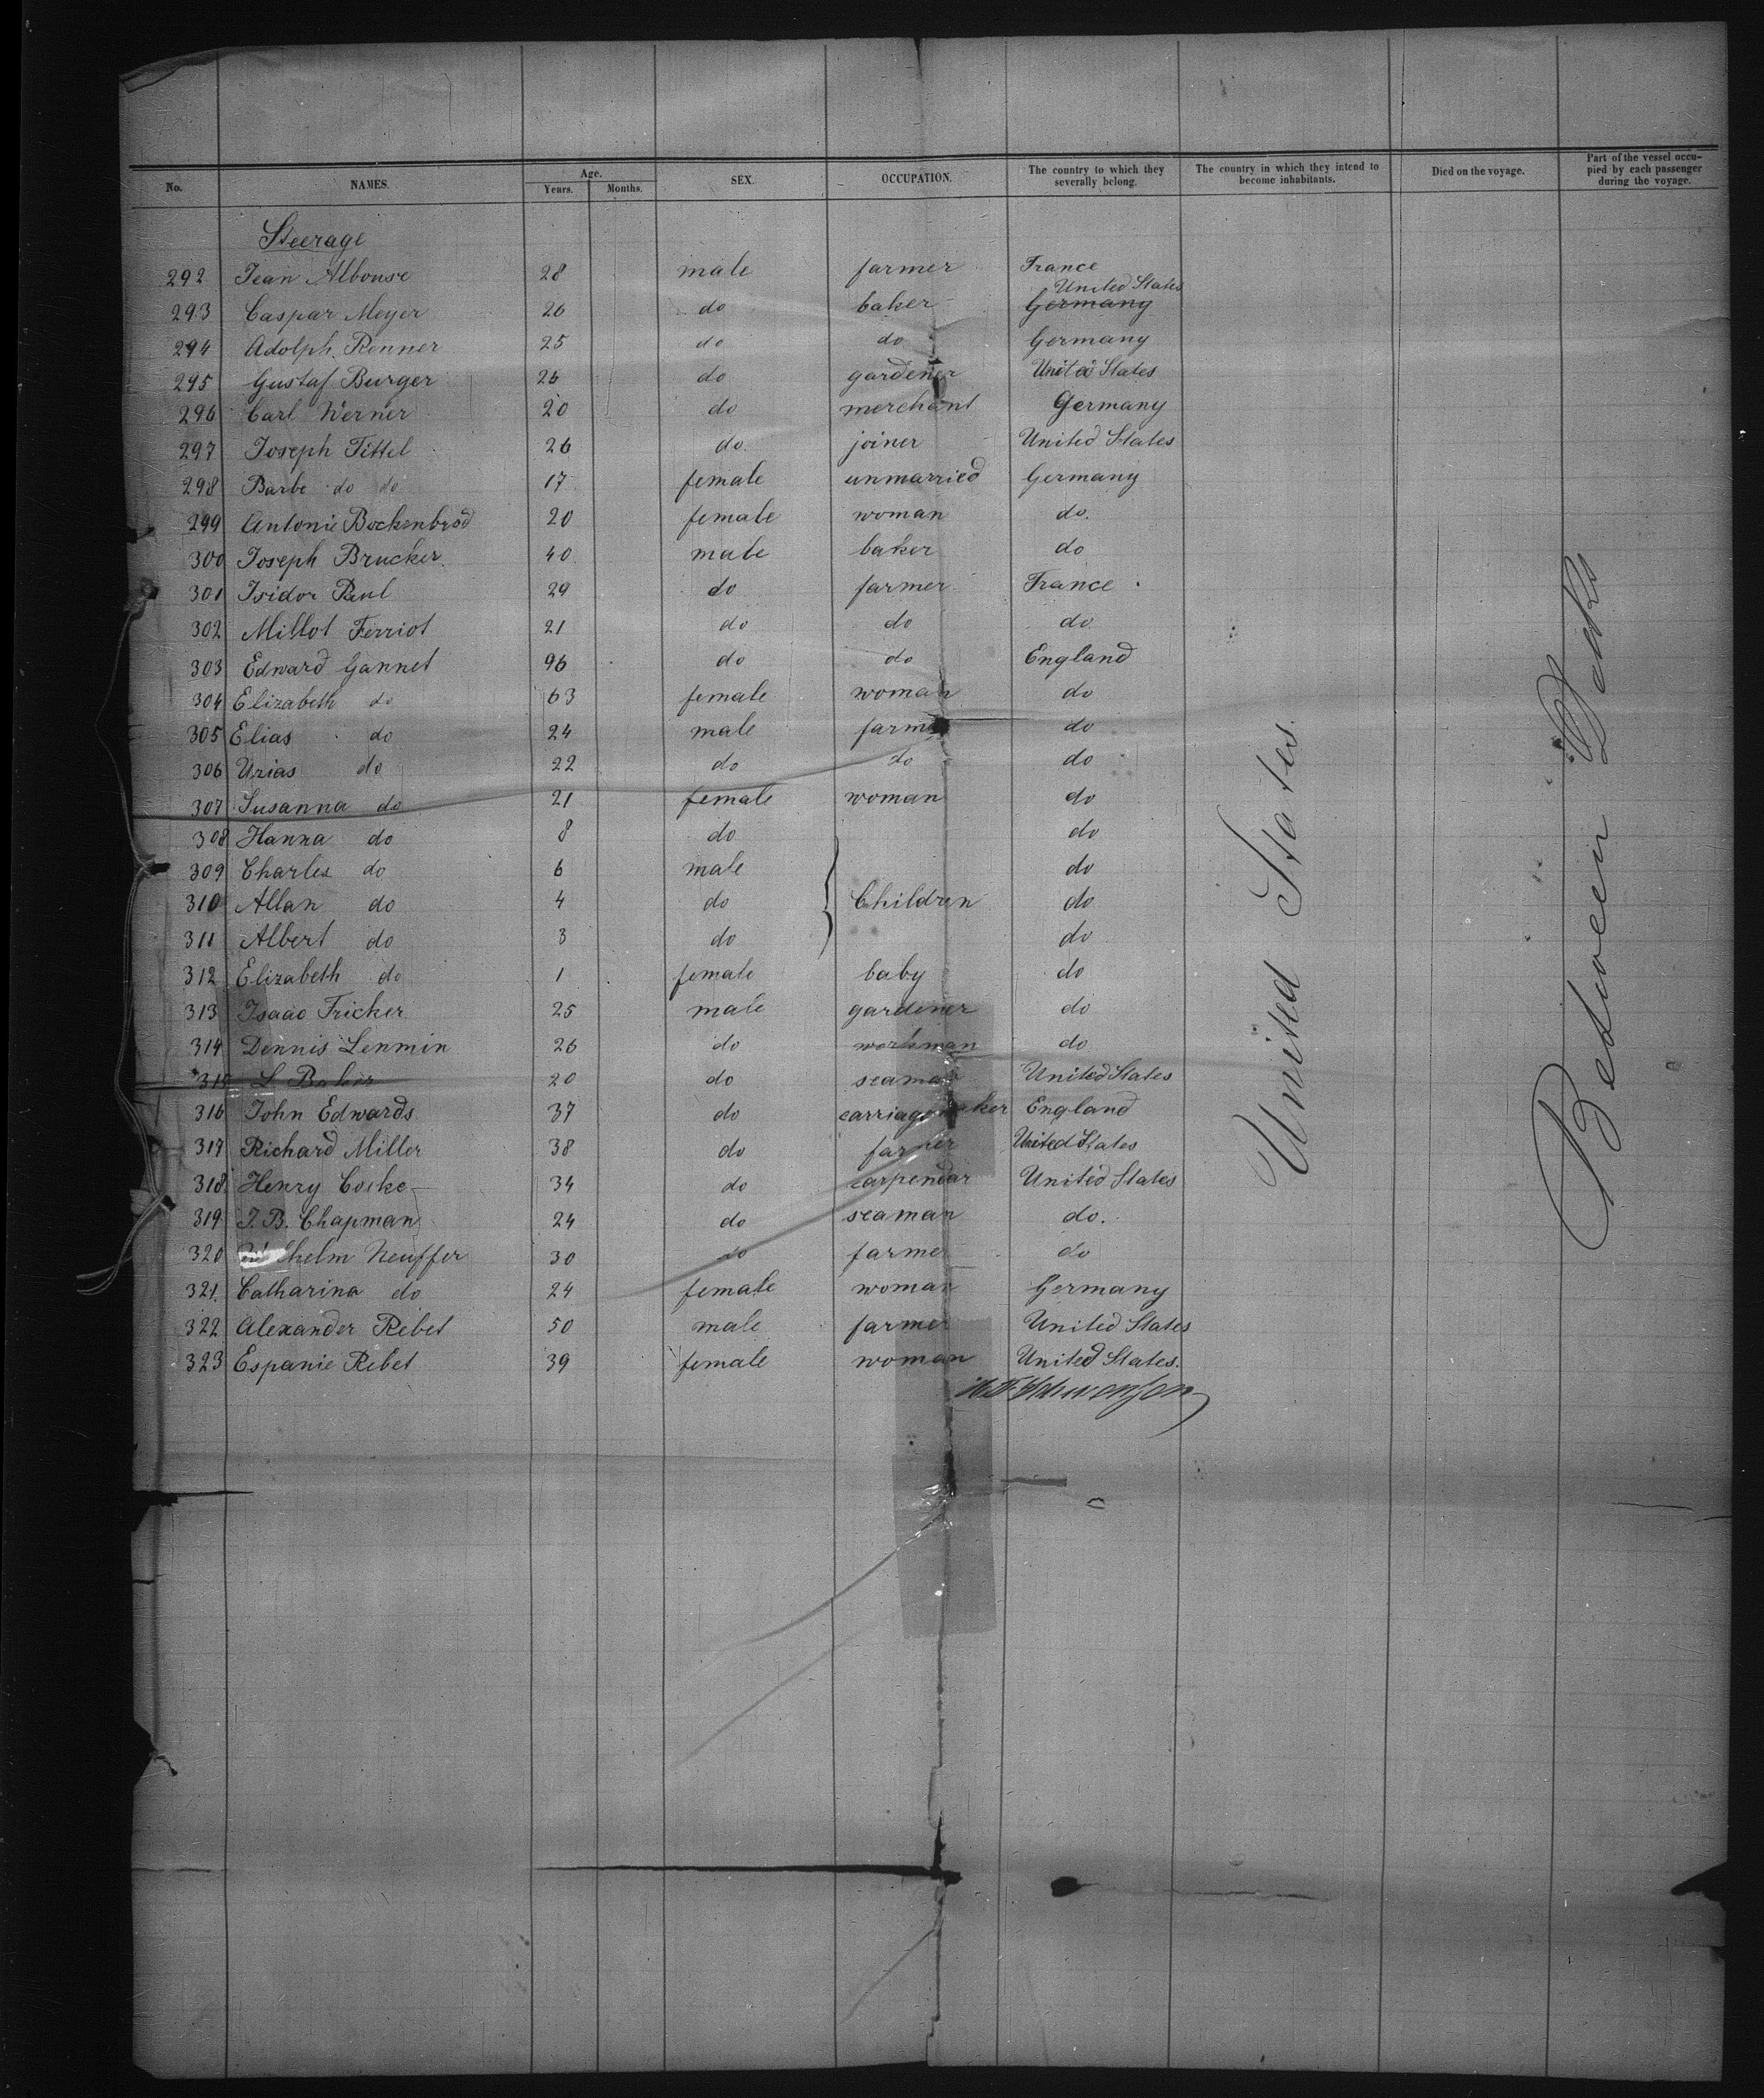 No. NAMES. Age. Years. Months. SEX. OCCUPATION. The country to which they severally belong. The country in which they intend to become inhabitants. Died on the voyage. Part of the vessel occupied by each passenger during the voyage.
Steerage
292 Jean Albouse 28 male farmer France
United States
293 Caspar Meyer 26 do baker Germany
294 Adolph Renner 25 do do Germany
295 Gustaf Burger 26 do gardener United States
296 Carl Werner 20 do merchant Germany
297 Joseph Tittel 26 do. joiner United States
298 Barbe do do 17 female unmarried Germany
299 Antonie Bockenbrod 20 female woman do.
300 Joseph Brucker. 40 male baker do
301 Isidor Paul 29 do farmer France
302 Millot Ferriot 21 do do do
303 Edward Gannet 96 do do England
304 Elizabeth do 63 female woman do
305 Elias do 24 male farmer do
306 Urias do 22 do do do
307 Susanna do 21 female woman do
308 Hanna do 8 do do
309 Charles do 6 male do
310 Allan do 4 do Children do
311 Albert do 3 do do
312 Elizabeth do 1 female baby do
313 Isaac Fricker 25 male gardener do
314 Dennis Lenmin 26 do workman do
315 L Baker 20 do seaman United States
316 John Edwards 37 do carriage maker England
317 Richard Miller 38 do farmer United States
318 Henry Cocke 34 do carpendar United States
319 J. B. Chapman 24 do seaman do.
320 Wilhelm Neuffer 30 do farmer do
321. Catharina do 24 female woman Germany
322 Alexander Rebet 50 male farmer United States
323 Espanie Rebet 39 female woman United States.
United States.
Between Decks